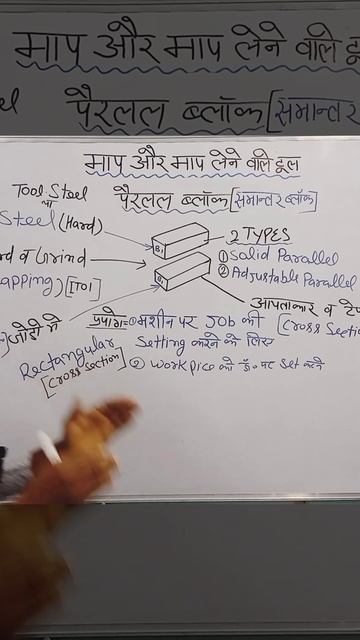 माप और माप लेने वाले टूल
पैरलल ब्लॉक [समान्तर
माप और माप लेने वाले टूल
पैरलल ब्लॉक [समान्तर ब्लॉक]
Tool Steel
या
Steel (Hard)
B1
B1
2 TYPES
① Solid Parallel
② Adjustable Parallel
व Grind
apping) [T01
आयताकार व
[Cross Section
जोडी मे
Rectangular
[Cross Section]
प्रयोग=① मशीन पर Job की
Setting करने के लिए
② Workpice को पर Set करने